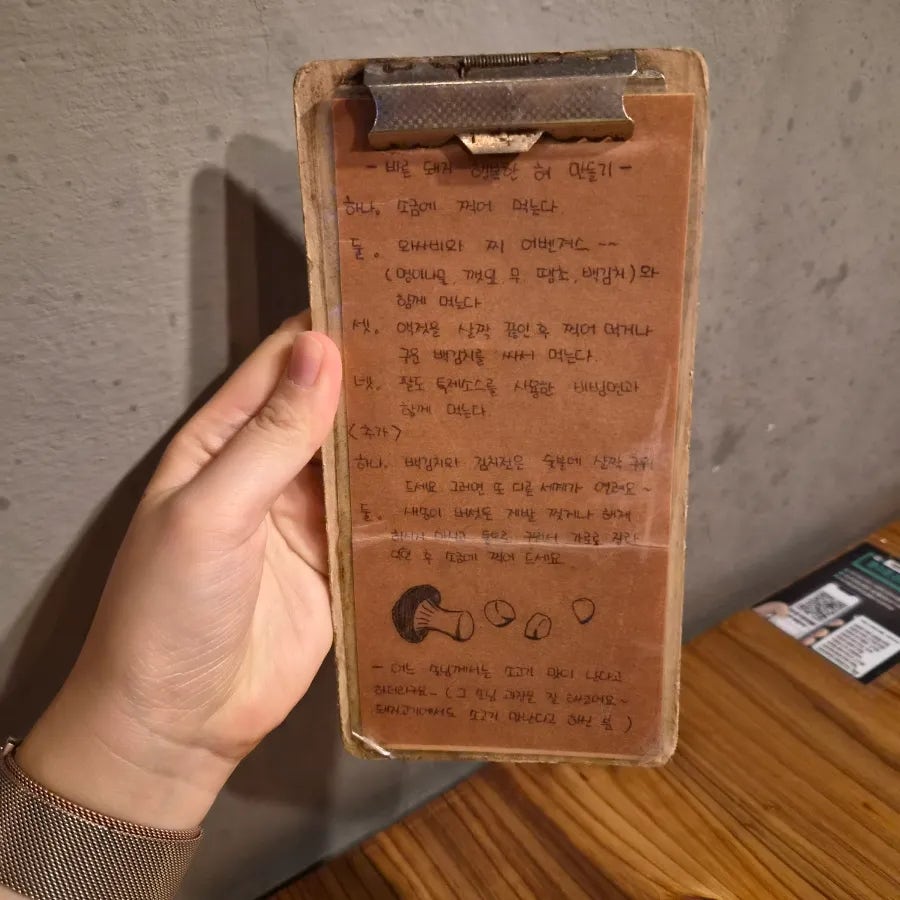 - 바른 돼지 행복한 혀 만들기 -
하나. 소금에 찍어 먹는다.
둘. 와사비와 찌 어벤져스 ~~
(명이나물, 깻잎, 무, 땡초, 백김치)와
함께 먹는다
셋. 액젓을 살짝 끓인 후 찍어 먹거나
구운 백김치를 싸서 먹는다.
넷. 팔도 특제소스를 사용한 비빔면과
함께 먹는다
<추가>
하나. 백김치와 김치전은 숯불에 살짝 구워
드세요 그러면 또 다른 세계가 열려요~
둘. 새송이 버섯도 제발 찢거나 해체
하시지 마시고 통으로 구워서 가로로 잘라
익힌 후 소금에 찍어 드세요.
- 어느 손님께서는 소고기 맛이 난다고
하더라구요~ (그 손님 과장을 잘 하셔요~
돼지고기에서도 소고기 맛난다고 하신 분)